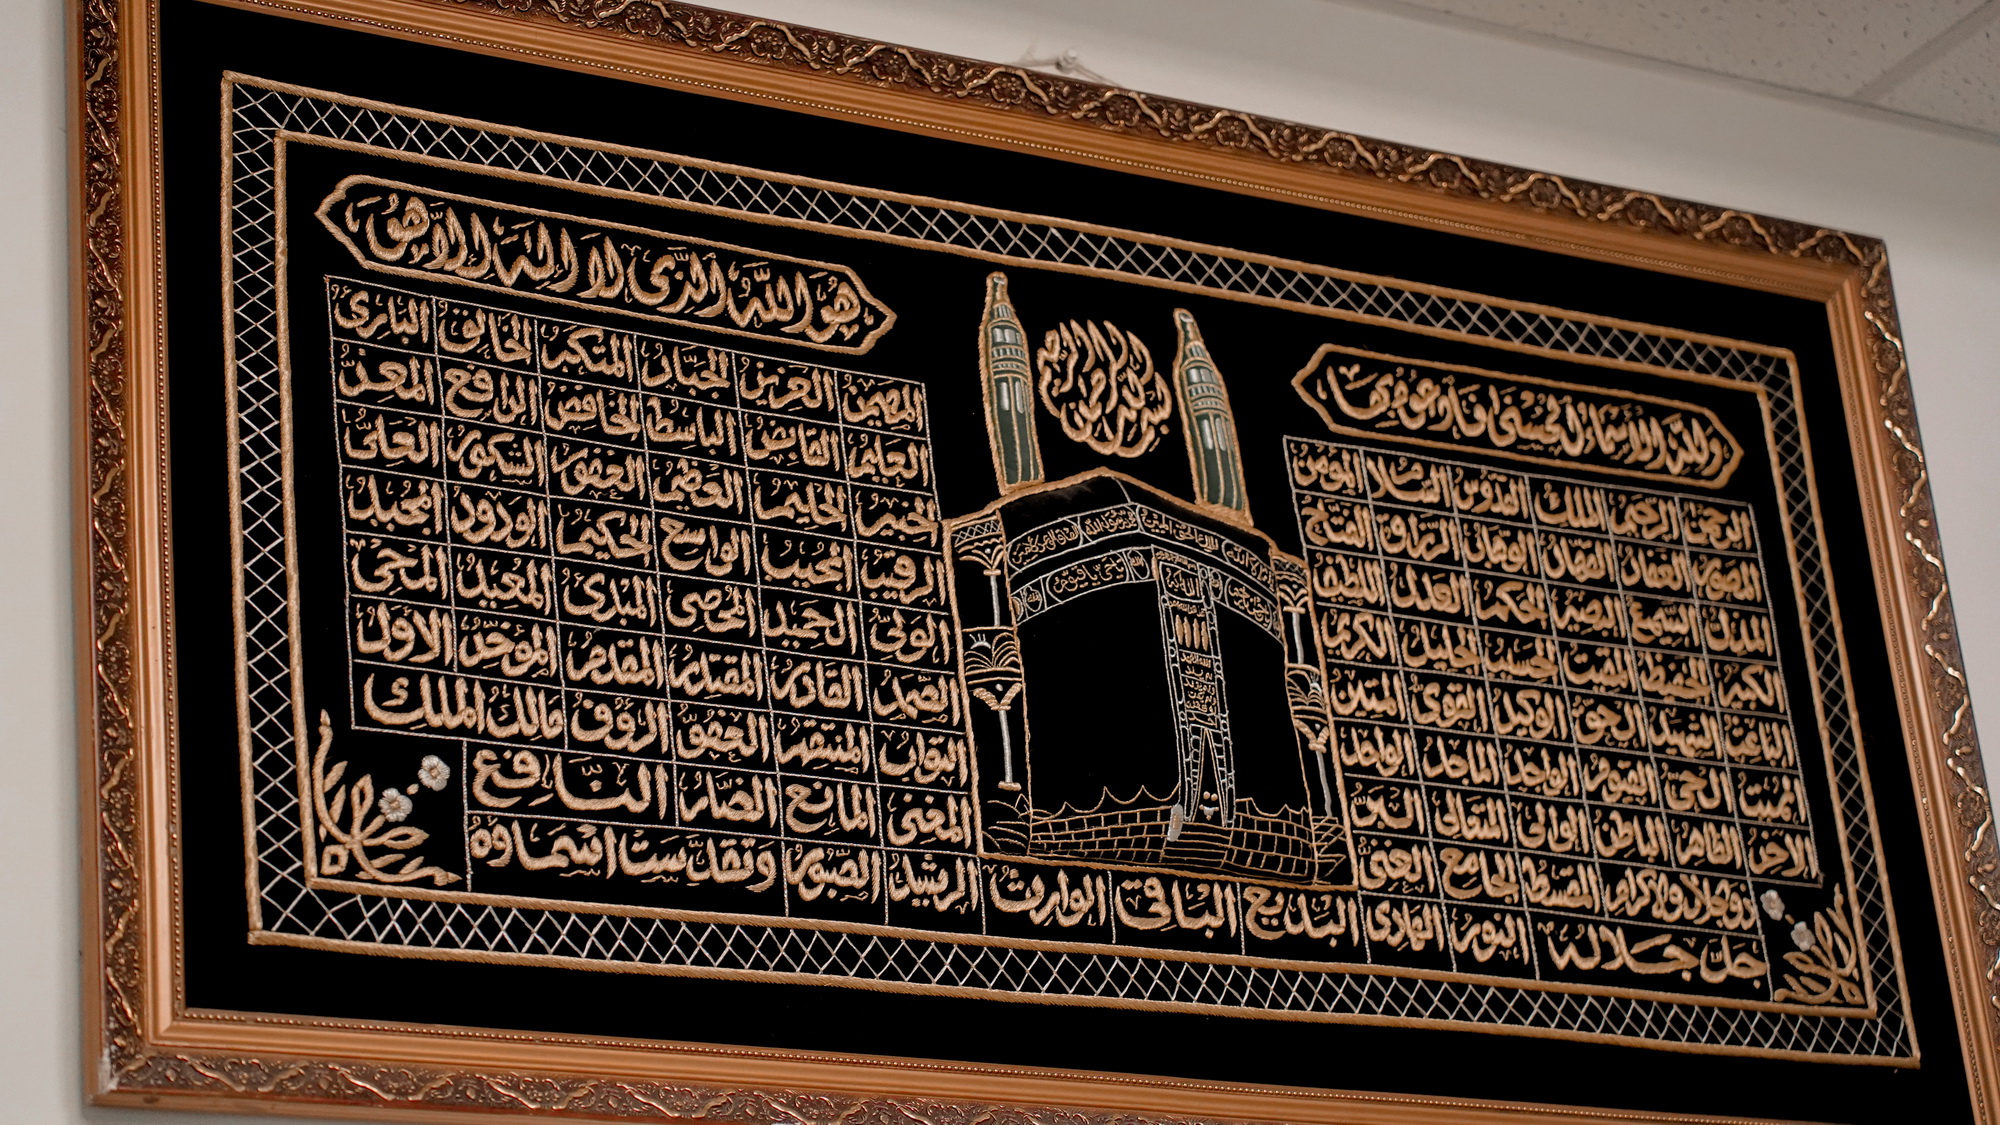 بسم الله الرحمن الرحيم
ولله الأسماء الحسنى فادعوه بها
هو الله الذي لا اله الا هو
الرحمن الرحيم الملك القدوس السلا المؤمن
المهيمن العزيز الجبار المتكبر الخالق البارئ
المصور الغفار القهار الوهاب الرزاق الفتاح
العليم القابض الباسط الخافض الرافع المعز
المذل السميع البصير الحكم العدل اللطيف
الخبير الحليم العظيم الغفور الشكور العلي
الكبير الحفيظ المقيت الحسيب الجليل الكريم
الرقيب المجيب الواسع الحكيم الودود المجيد
الباعث الشهيد الحق الوكيل القوي المتين
الولي الحميد المحصي المبدئ المعيد المحيي
المميت الحي القيوم الواجد الماجد الواحد
الصمد القادر المقتدر المقدم المؤخر الأول
الآخر الظاهر الباطن الوالي المتعالي البر
التواب المنتقم العفو الرؤف مالك الملك
ذو الجلال والاكرام المقسط الجامع الغني
المغني المانع الضار النافع
جل جلاله النور الهادي البديع الباقي الوارث الرشيد الصبور وتقدست اسماؤه